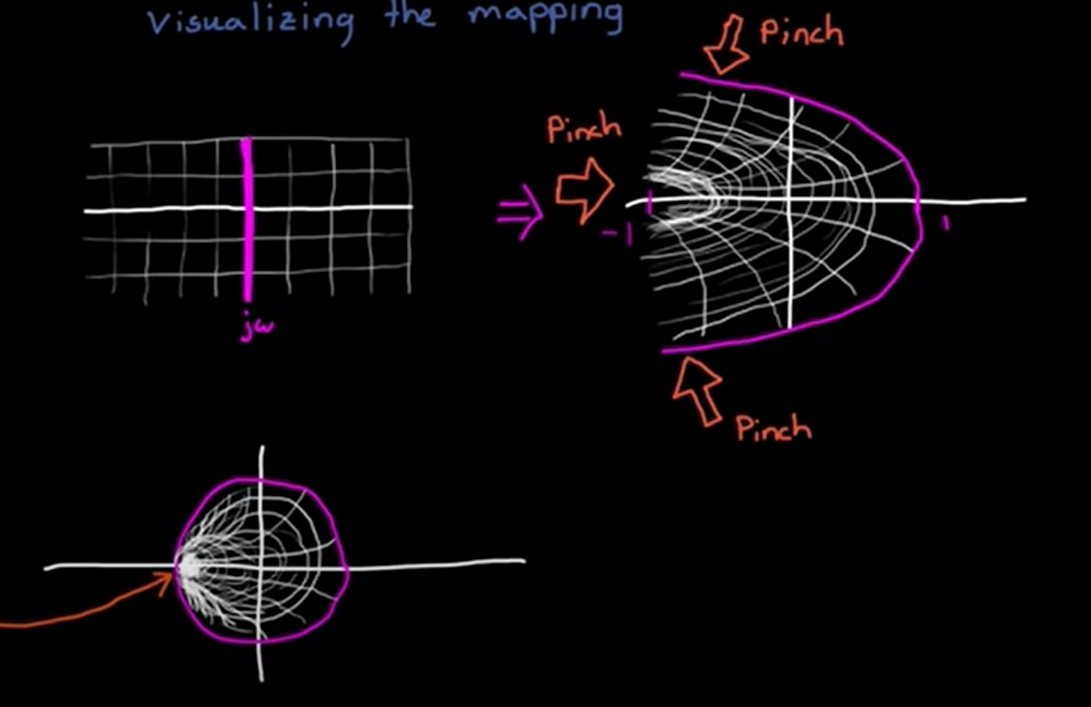 Visualizing the mapping
Pinch
Pinch
-1
1
jω
Pinch